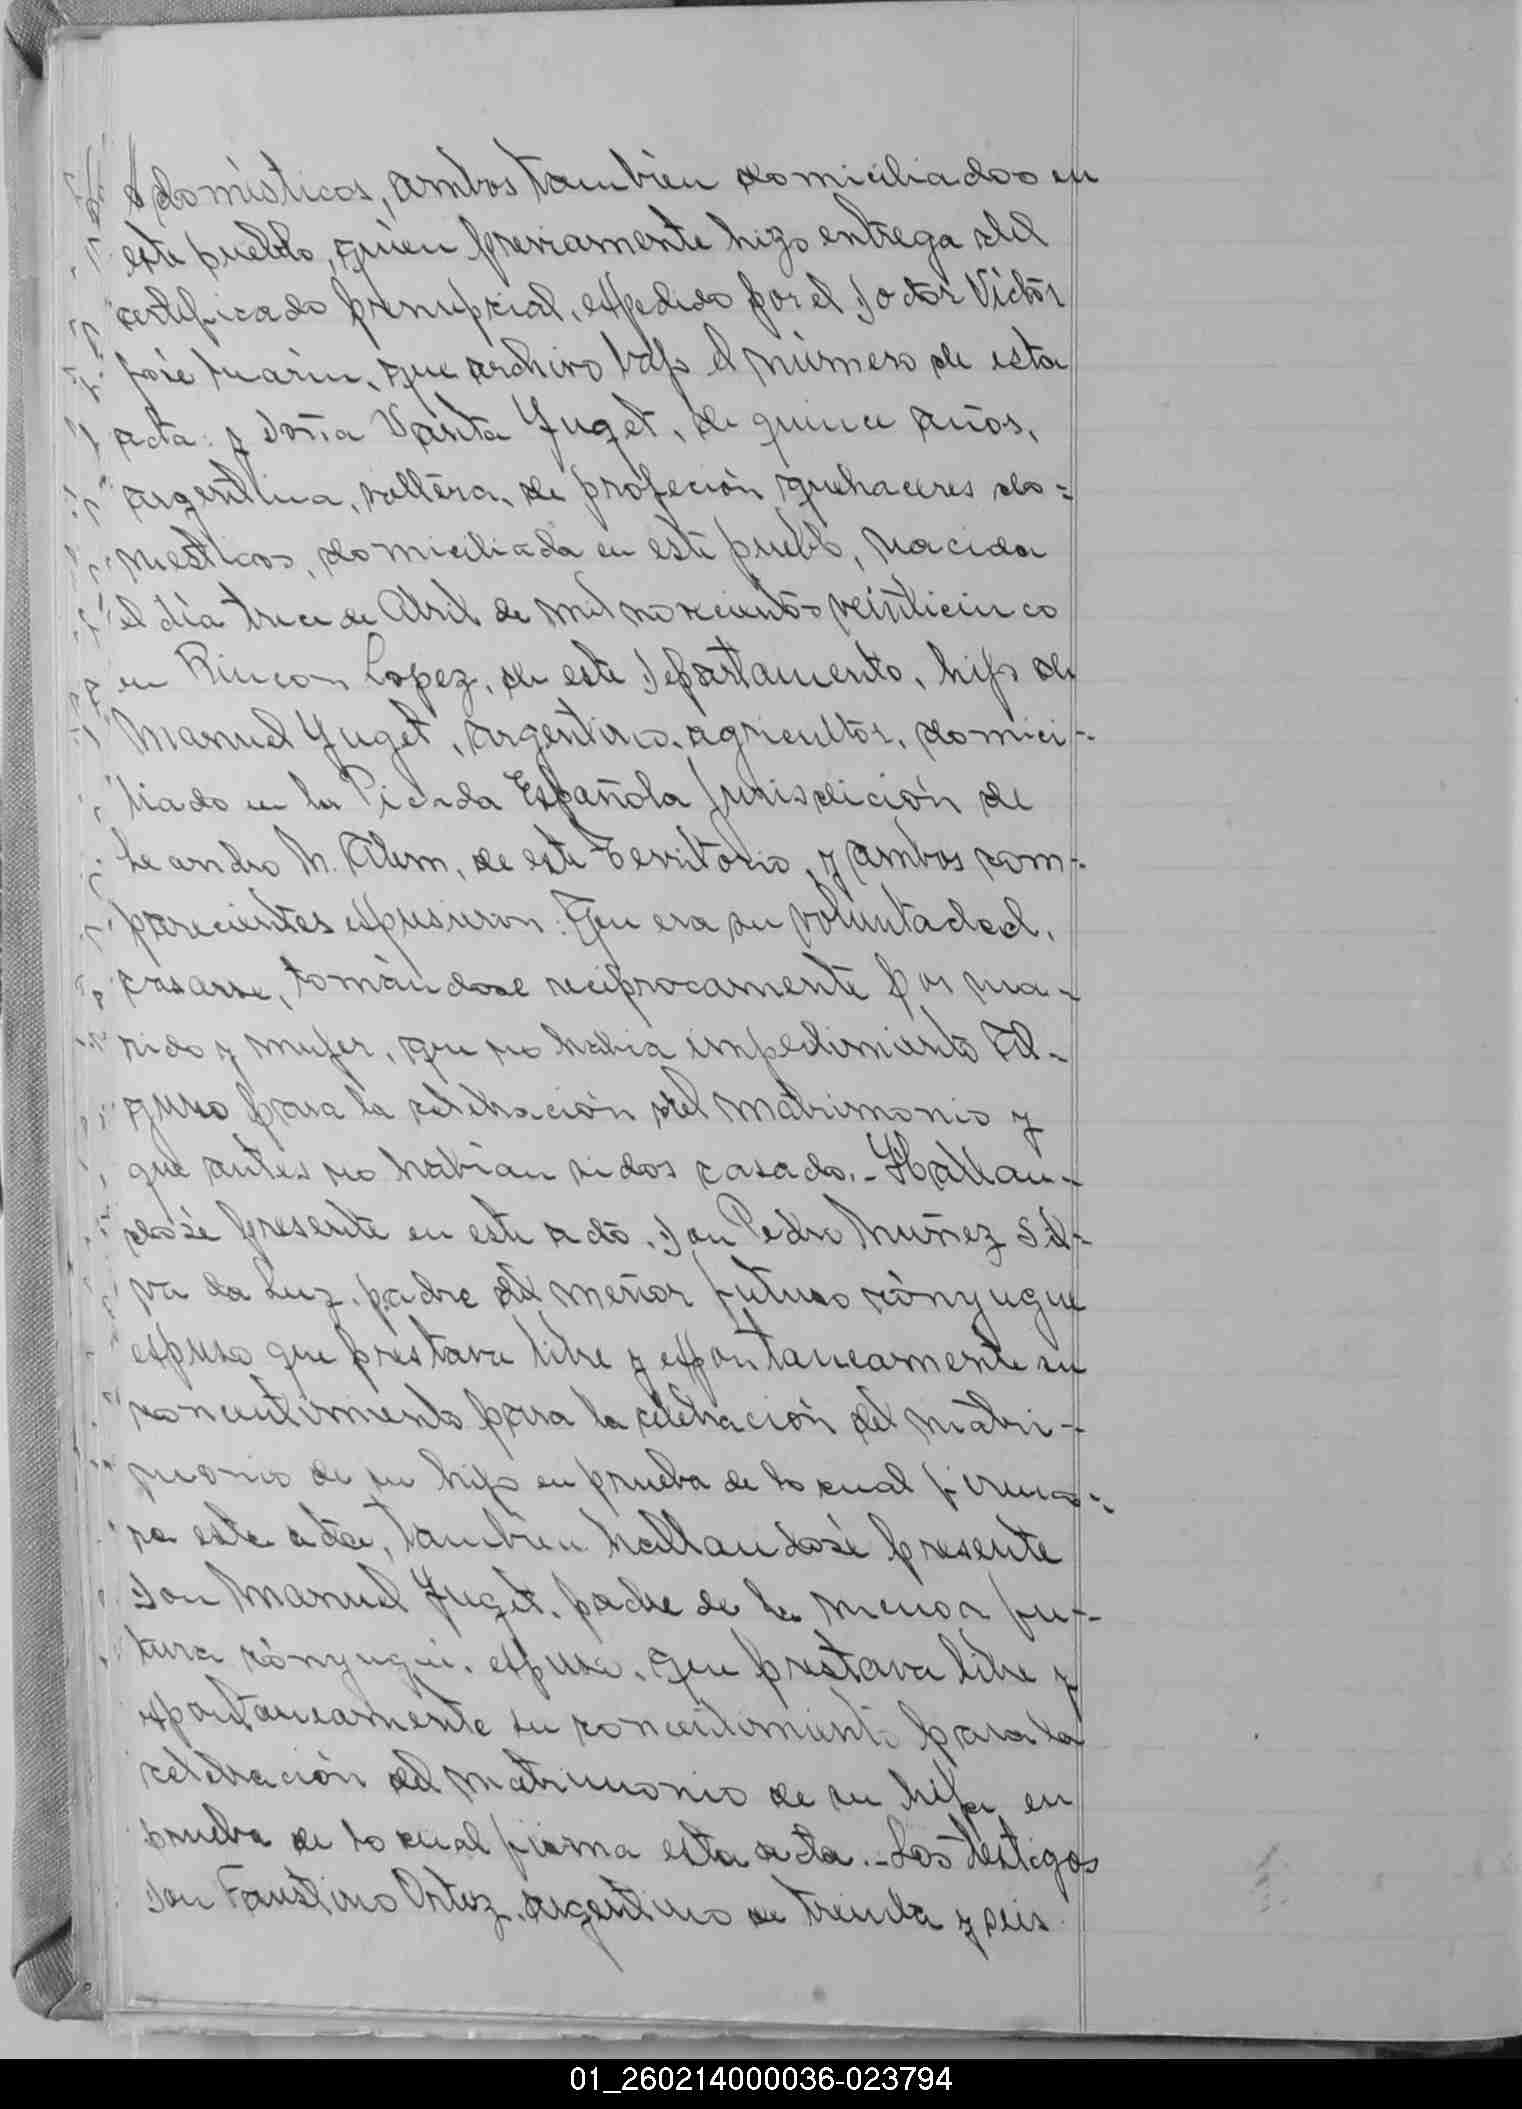 domésticos, ambos tambien domiciliados en
este pueblo, quien previamente hizo entrega del
certificado prenupcial, expedido por el Doctor Victor
José Marin, que archivo bajo el número de esta
acta: y Doña Juget, de quince años,
argentina, soltera, de profeción quehaceres do=
mesticos, domiciliada en este pueblo, nacida
el día trece de Abril de mil novecientos veinticinco
en Rincon Lopez, de este Departamento, hija de
Manuel Juget, argentino, agricultor, domici-
liado en la Picada Española jurisdición de
Leandro N. Alem, de este Territorio, y ambos com-
parecientes expusieron: Que era su voluntaded,
casarse, tomándose reciprocamente por ma-
rido y mujer, que no habia impedimiento al-
guno para la celebración del matrimonio y
que antes no habian sidos casado.- Hallan-
dosé presente en este acto, Don Pedro Nuñez Sil-
va da Luz, padre del menor futuro cónyugue
expuso que prestava libre y espontaneamente su
concentimiento para la celebración del matri-
monio de su hijo en prueba de lo cual firma-
ra esta acta, tambien hallandosé presente
Don Manuel Juget, padre de la menor fu-
tura cónyugue, expuso, que prestava libre y
espontaneamente su concentimiento para la
celebración del matrimonio de su hija en
prueba de lo cual firma esta acta.- Los testigos
Don Faustino Ortiz, argentino de treinta y seis
01_260214000036-023794